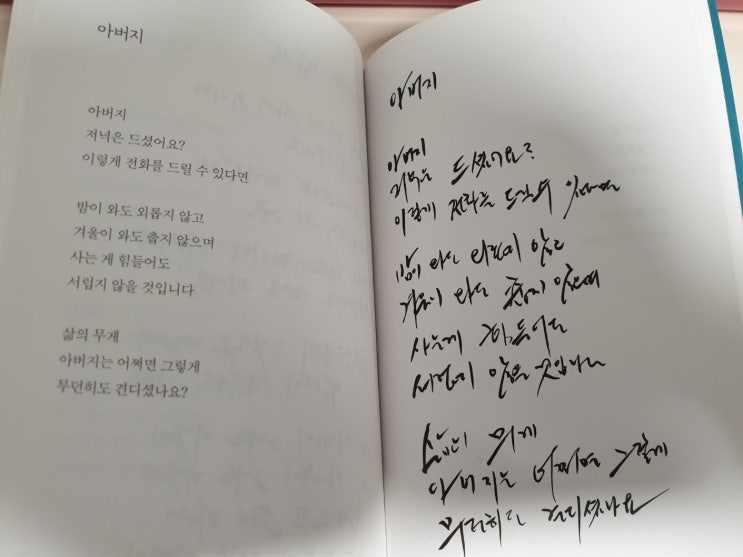 아버지
아버지
저녁은 드셨어요?
이렇게 전화를 드릴 수 있다면
밤이 와도 외롭지 않고
겨울이 와도 춥지 않으며
사는 게 힘들어도
서럽지 않을 것입니다
삶의 무게
아버지는 어쩌면 그렇게
무던히도 견디셨나요?
아버지
아버지
저녁은 드셨어요?
이렇게 전화를 드릴 수 있다면
밤이 와도 외롭지 않고
겨울이 와도 춥지 않으며
사는게 힘들어도
서럽지 않을 것입니다
삶의 무게
아버지는 어쩌면 그렇게
무던히도 견디셨나요